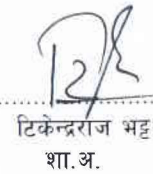 टिकेन्द्रराज भट्ट
शा.अ.